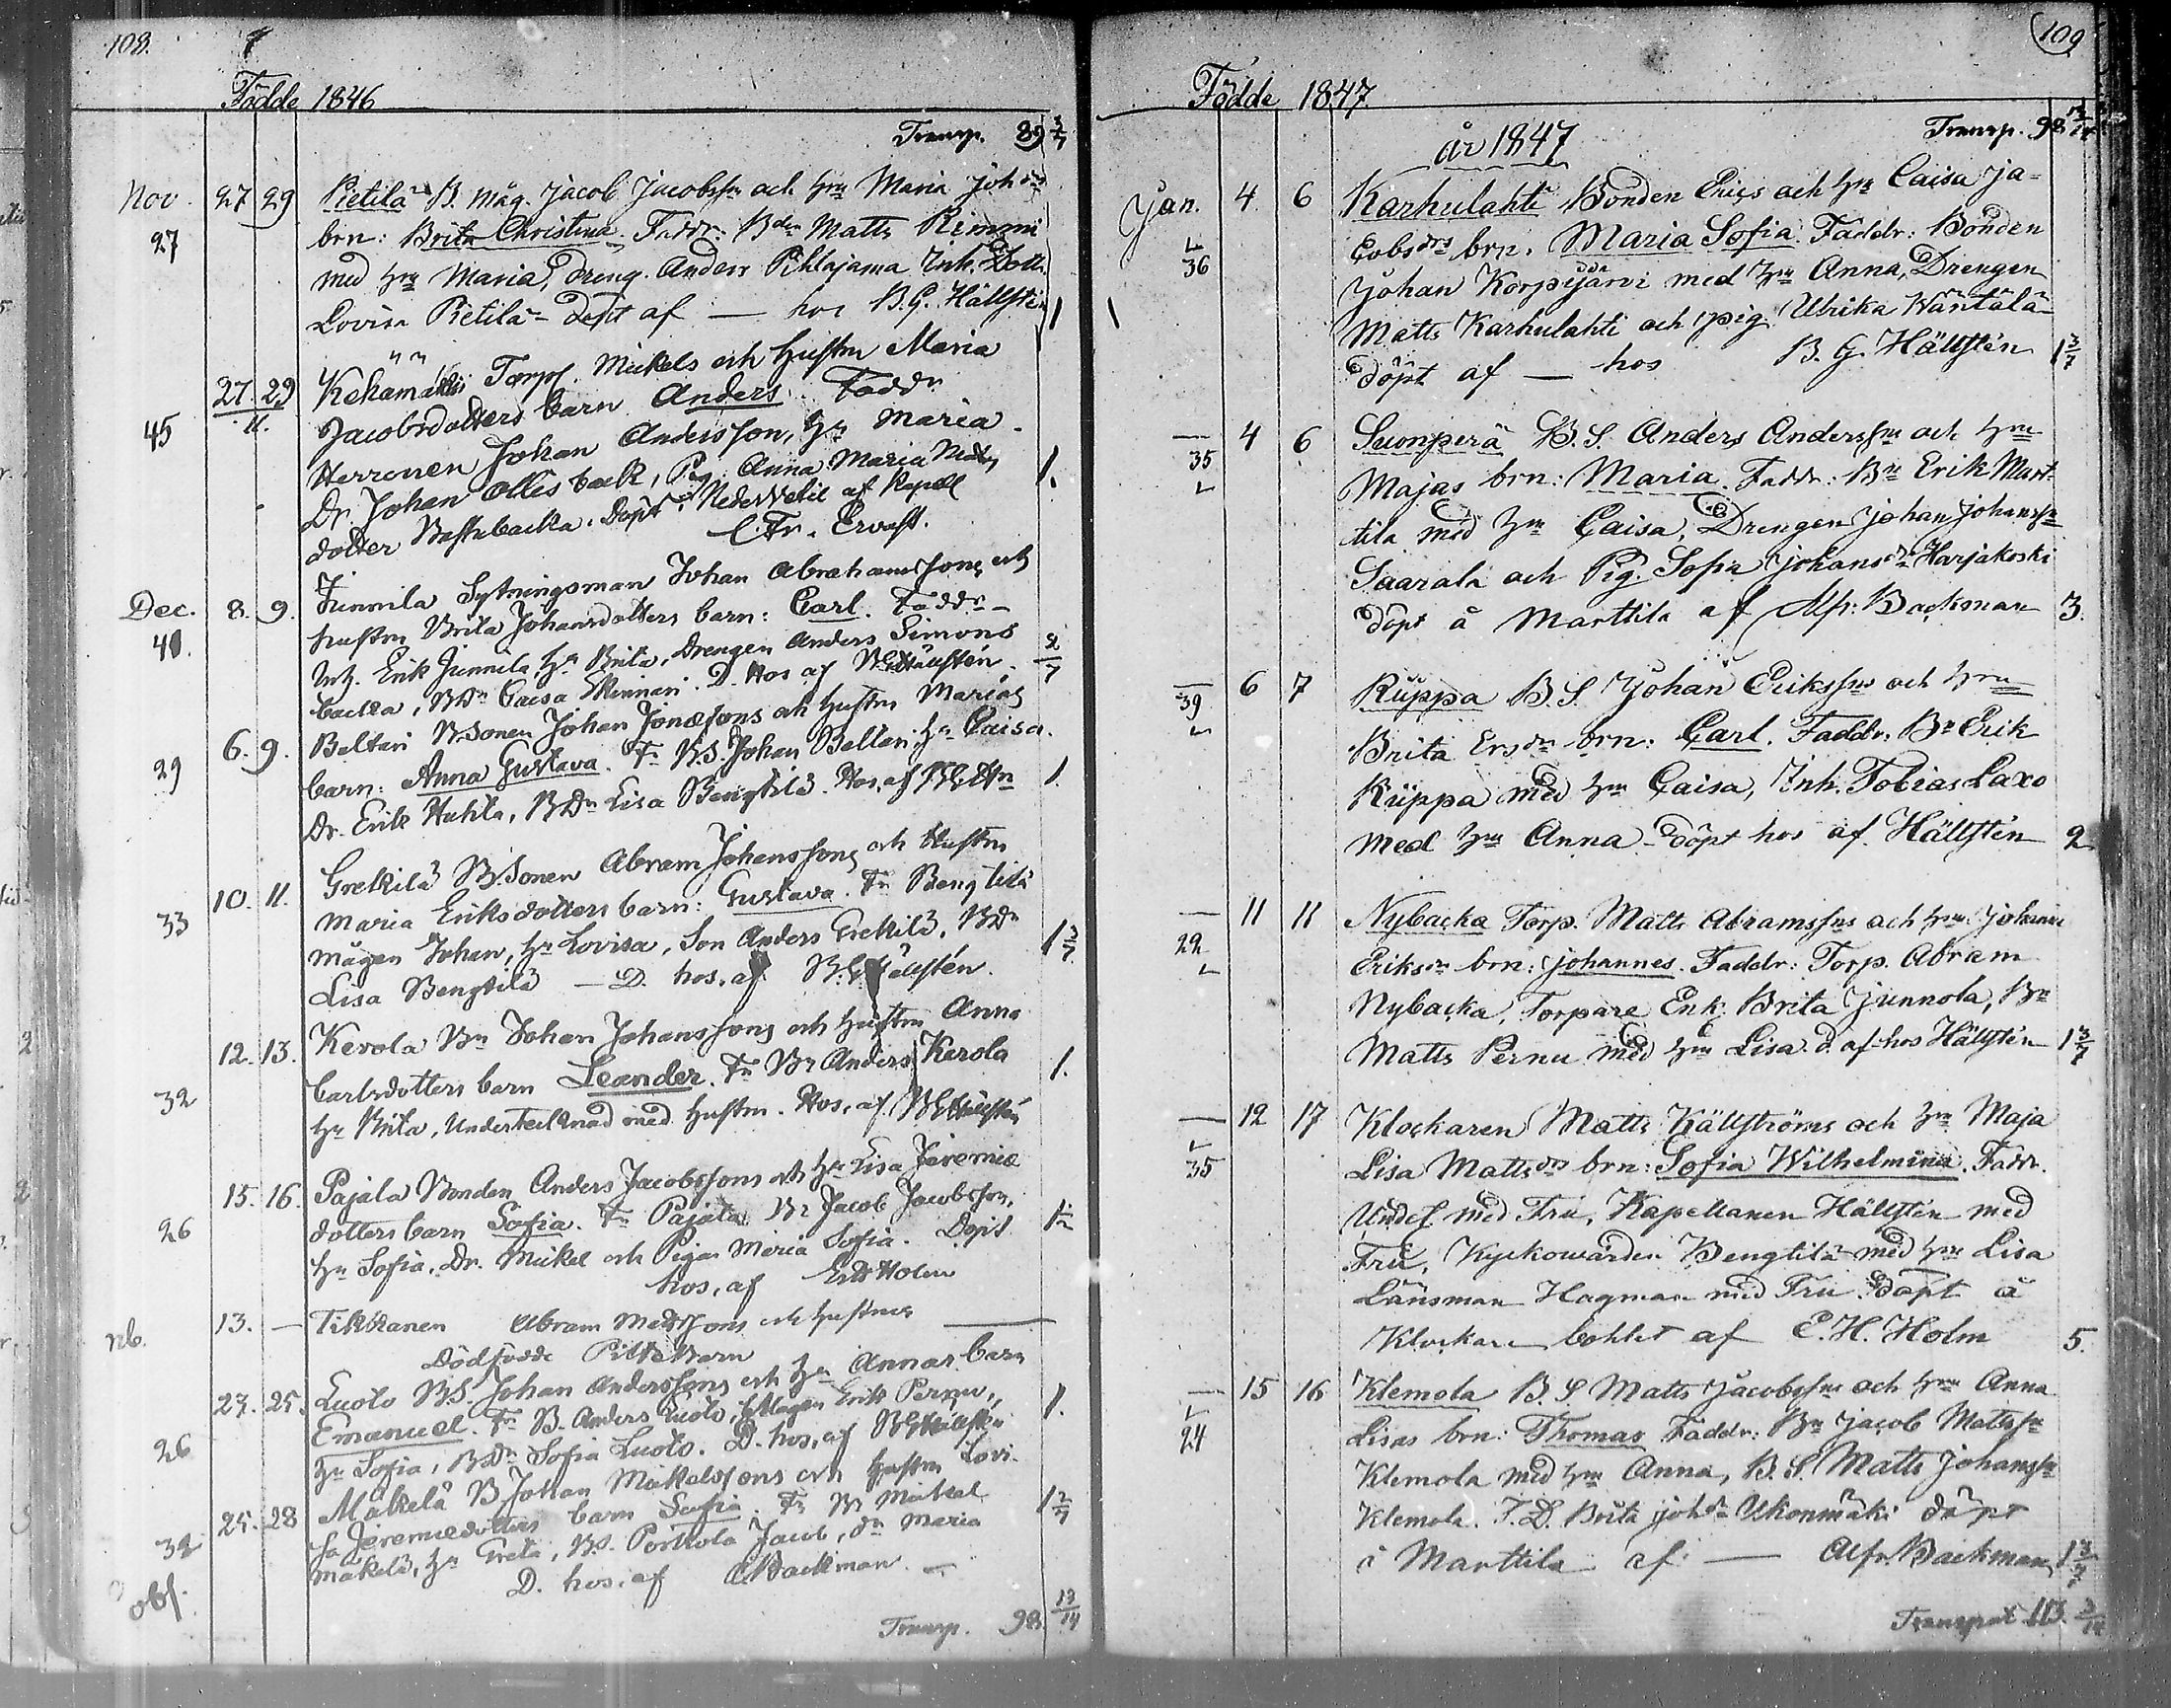 108.
Födde 1846
Transp. 89 3/7
Nov. 27 29 Pietilä B. måg. Jacob Jacobss:n och h:u Maria Joh:dr
27 brn: Brita Christina. Faddr: B:den Matts Rimmi
med h:u Maria, dreng. Anders Pihlajama Inh. Dott.
Lovisa Pietilä döpt af — hos B.G. Hällsten 1
27. 29 Kekamäkis Torp. Mickels och hustru Maria
11.
45 Jacobsdotters barn Anders. Faddr
Herronen Johan Andersson, h:u Maria
Dr. Johan Olles back, Pig. Anna Maria Matts 1.
dotter Bastubacka. Döpt i Nedervetil af Kapell
C. Fr. Ervast.
Dec. 8. 9. Junnila Sytningsman Johan Abrahamssons och
40. hustru Brita Johansdotters barn: Carl. Faddr
Inh. Erik Junnila, h:u Brita, Drengen Anders Simons
backa, BD:r Caisa D. Hos af BGHällstén. 2/7
6. 9. Beltari B.sonen Johan Jonassons och hustru Marias
29 barn: Anna Gustava. F:r B.S. Johan Beltari, h:u Caisa.
Dr. Erik Huhta, BD:r Lisa Bengtilä. Hos, af BGH:n 1.
10. 11. Grekilä B.Sonen Abram Johanssons och Hustru
33 Maria Eriksdotters barn: Gustava. F:r Bengtilä
mågen Johan, h:u Lovisa, Son Anders Grekilä, BD:r 1 3/7
Lisa Bengtilä — D. hos, af B.G. Hällstén.
12. 13. Kerola B:n Johan Johanssons och hustru Anna
32 Carlsdotters barn Leander. F:r B:r Anders Kerola 1.
h:u Brita, Undertecknad med hustru. Hos, af BGHällstén
15. 16. Pajala Bonden Anders Jacobssons och h:u Lisa Jeremie
26 dotters barn Sofia. F:r Pajala B:r Jacob Jacobsson, 1 1/2
h:u Sofia, Dr. Mickel och Pigan Maria Sofia. Döpt
hos, af EH Holm
nb. 13. — Tikkanen Abram Mattssons och hustrus —
Dödfödde Pilte barn
23. 25. Luoto BS. Johan Anderssons och h:u Annas barn
26 Emanuel. F:r B. Anders Luoto, Mågen Erik Pernu, 1.
h:u Sofia, BD:r Sofia Luoto. D. hos, af BGHällstén
25. 28 Mäkelä B Johan Mickelssons och hustru Lovi-
32 sa Jeremiedotters barn Sofia. F:r B:r Mickel 1 2/7
obs. Mäkelä, h:u Greta, B.S. Porkola Jacob, d:r Maria
D. hos, af A Backman. —
Transp. 98. 13/14
109
Födde 1847
år 1847 Transp. 98 13/14
Jan. 4 6 Karhulahti Bonden Erics och h:u Caisa Ja-
36 cobs:drs brn. Maria Sofia. Faddr: Bonden
Johan Korpijärvi med h:u Anna, Drengen
Matts Karhulahti och pig. Ulrika Wäntälä
döpt af — hos B.G. Hällstén 1 3/7
— 4 6 Suonperä B.S. Anders Anderss:n och h:u
35 Majas brn: Maria. Faddr: B:n Erik Mart-
tila med h:u Caisa, Drengen Johan Johanss:n
Saarala och Pig. Sofia Johans:dr Harjakoski
döpt å Marttila af Alfr: Backman 3.
— 6 7 Rüppa B.S. Johan Erikss:ns och h:u
39 Brita Ers:dr brn: Carl. Faddr: B:n Erik
Rüppa med h:u Caisa, Inh. Tobias Laxo
med h:u Anna döpt hos af Hällstén 2
— 11 11 Nybacka Torp. Matts Abramss:ns och h:u Johanna
22 Eriks:dr brn: Johannes. Faddr: Torp. Abram
Nybacka, Torpare Enk. Brita Junnola, B:n
Matts Pernu med h:u Lisa. d. af hos Hällstén 1 3/7
— 12 17 Klockaren Matts Källströms och h:u Maja
35 Lisa Matts:drs brn: Sofia Wilhelmina. Faddr.
Undert. med Fru, Kapellanen Hällstén med
Fru, Kyrkowärden Bengtilä med h:u Lisa
Länsman Hagman med Fru. döpt å
Klockare bohlet af E.H. Holm 5.
— 15 16 Klemola B.S Matts Jacobss:ns och h:u Anna
24 Lisas brn: Thomas Faddr: B:n Jacob Mattss:n
Klemola med h:u Anna, B.S. Matts Johanss:n
Klemola. T.D. Brita Joh:dr Ykonmäki döpt
i Marttila af: — Alfr. Backman, 1 3/7
Transport 113. 3/14